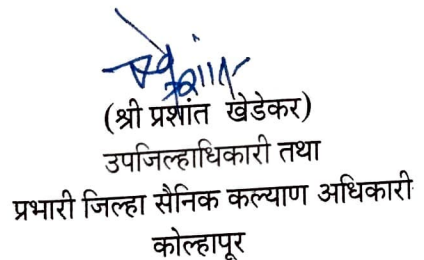 (श्री प्रशांत खेडेकर)
उपजिल्हाधिकारी तथा
प्रभारी जिल्हा सैनिक कल्याण अधिकारी
कोल्हापूर